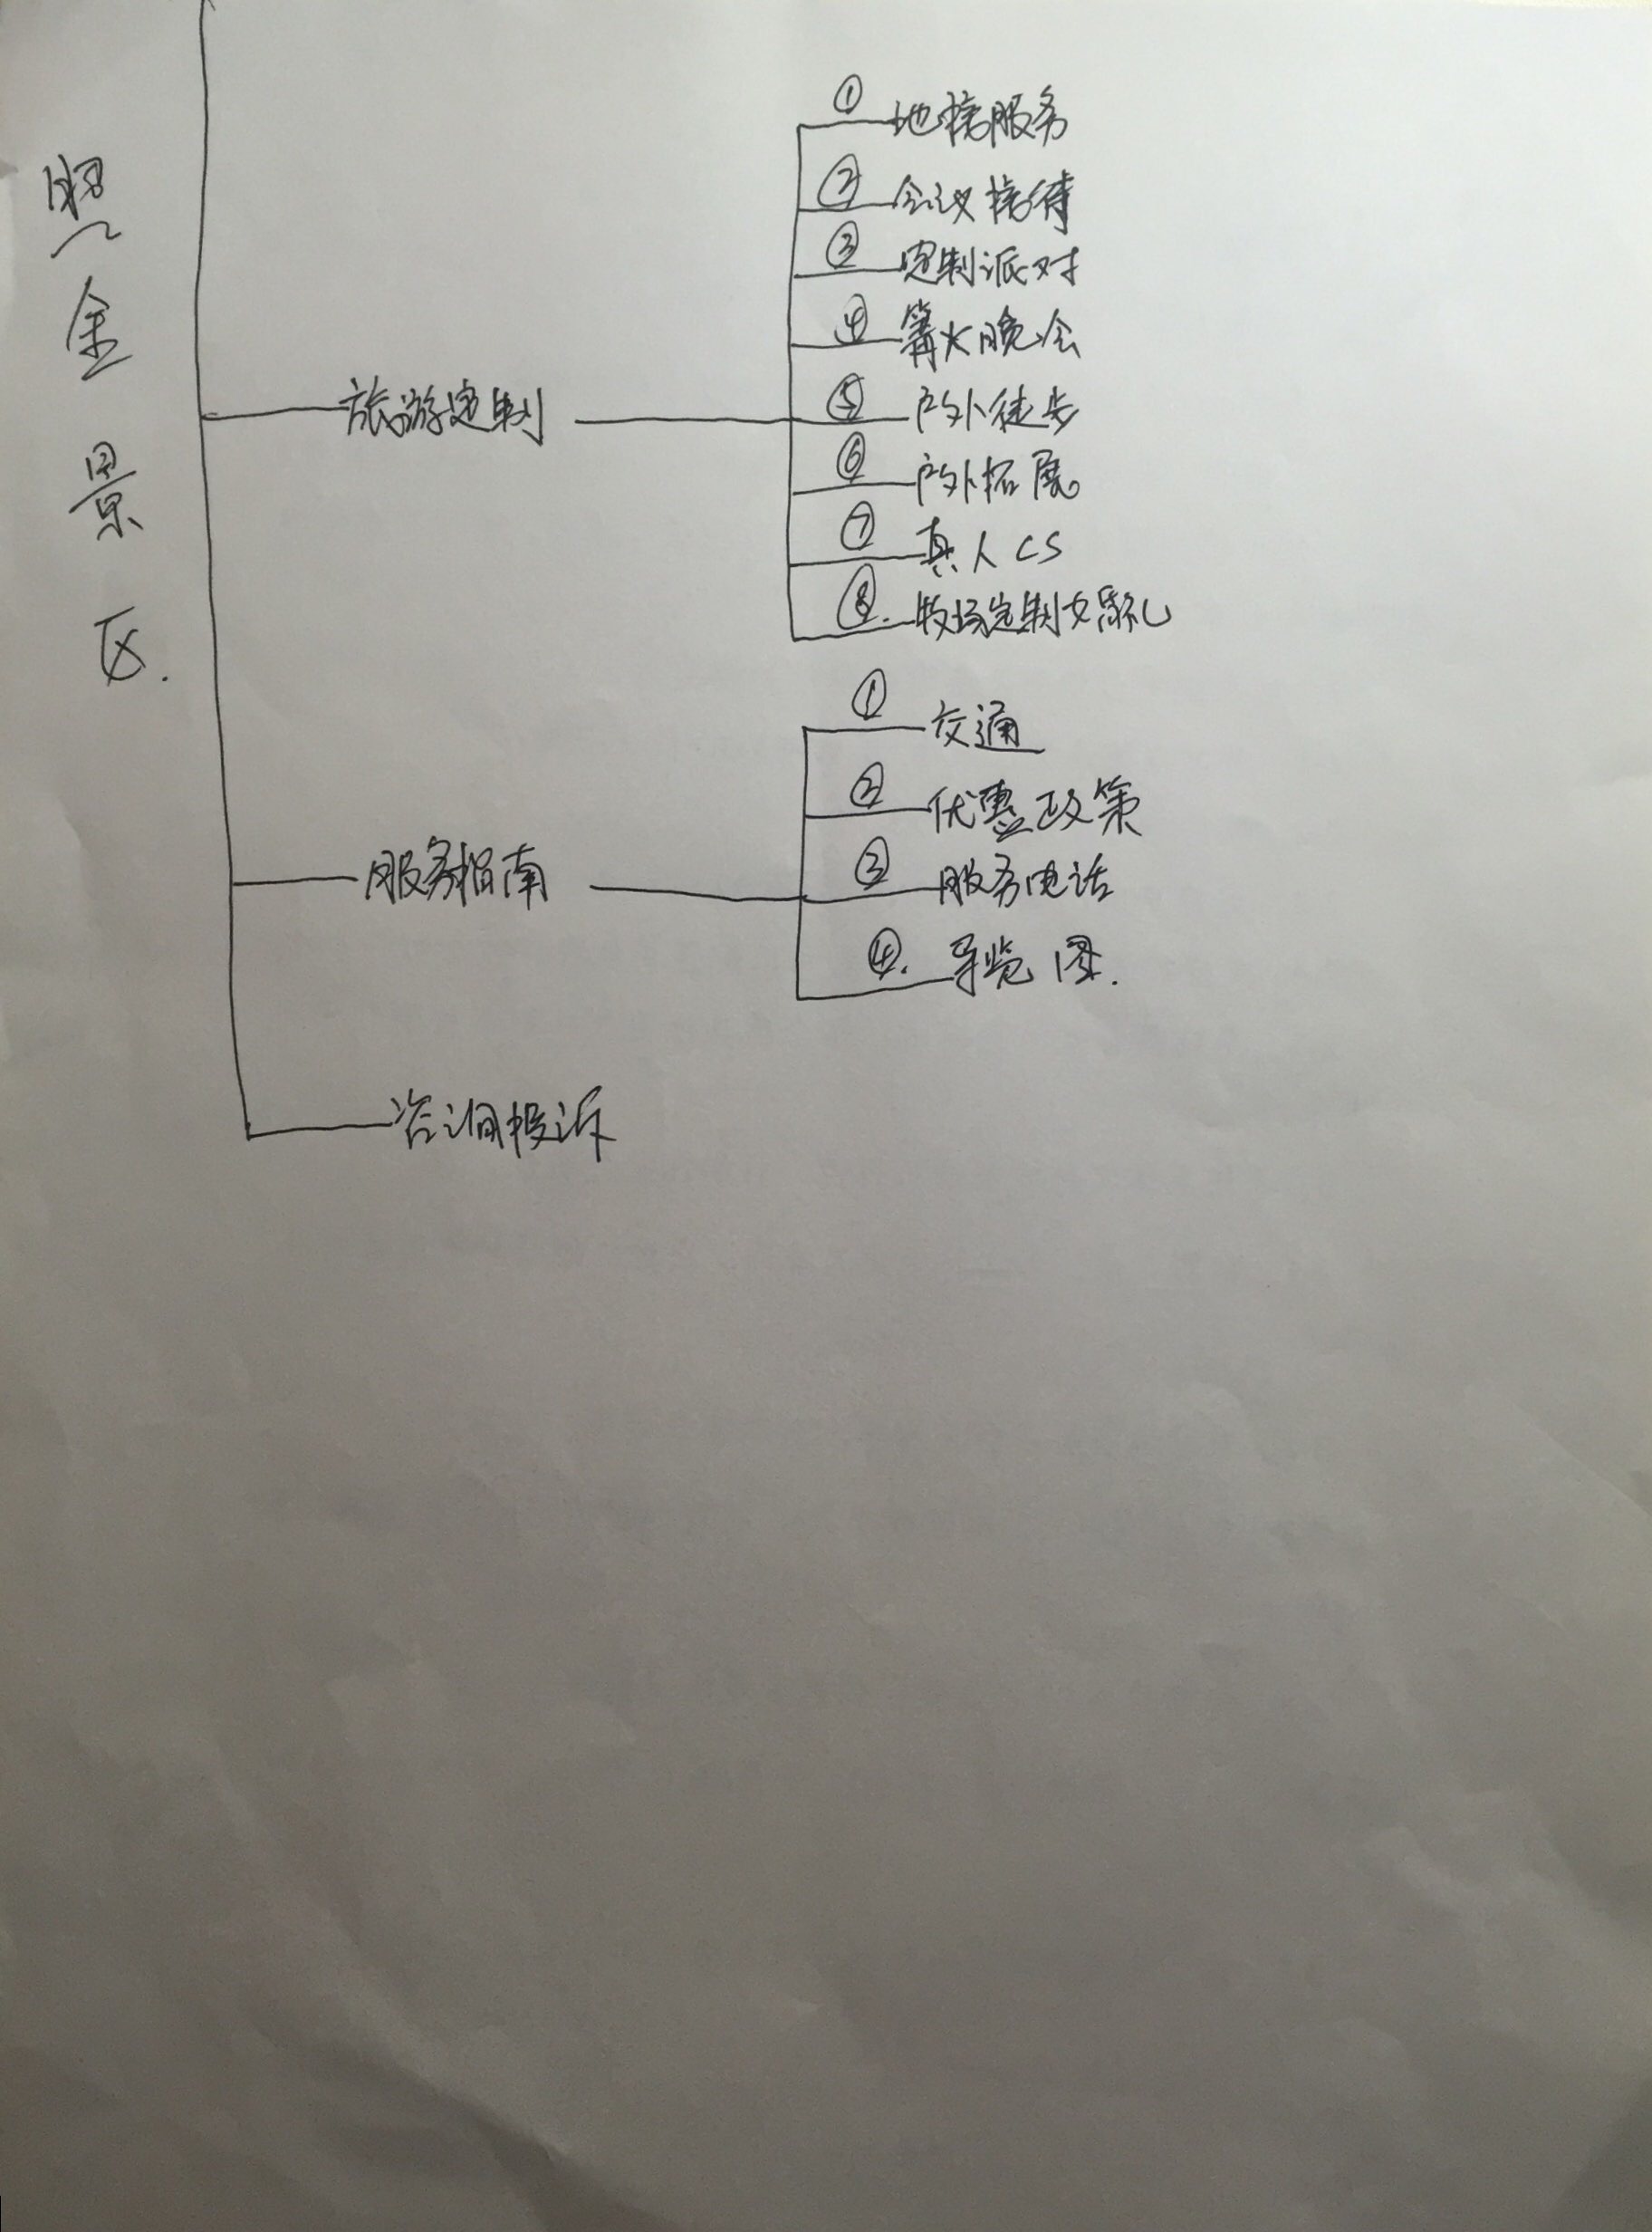 照金景区.
旅游定制
① 地接服务
② 会议接待
③ 定制派对
④ 篝火晚会
⑤ 户外徒步
⑥ 户外拓展
⑦ 真人CS
⑧. 牧场定制婚礼
服务指南
① 交通
② 优惠政策
③ 服务电话
④. 导览图.
咨询投诉